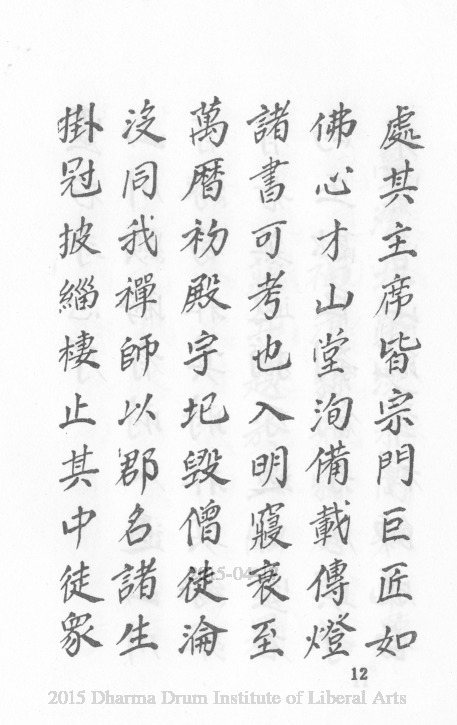 處其主席皆宗門巨匠如
佛心才山堂洵備載傳燈
諸書可考也入明寖衰至
萬曆初殿宇圮毀僧徒淪
沒同我禪師以郡名諸生
掛冠披緇棲止其中徒眾
12
2015 Dharma Drum Institute of Liberal Arts